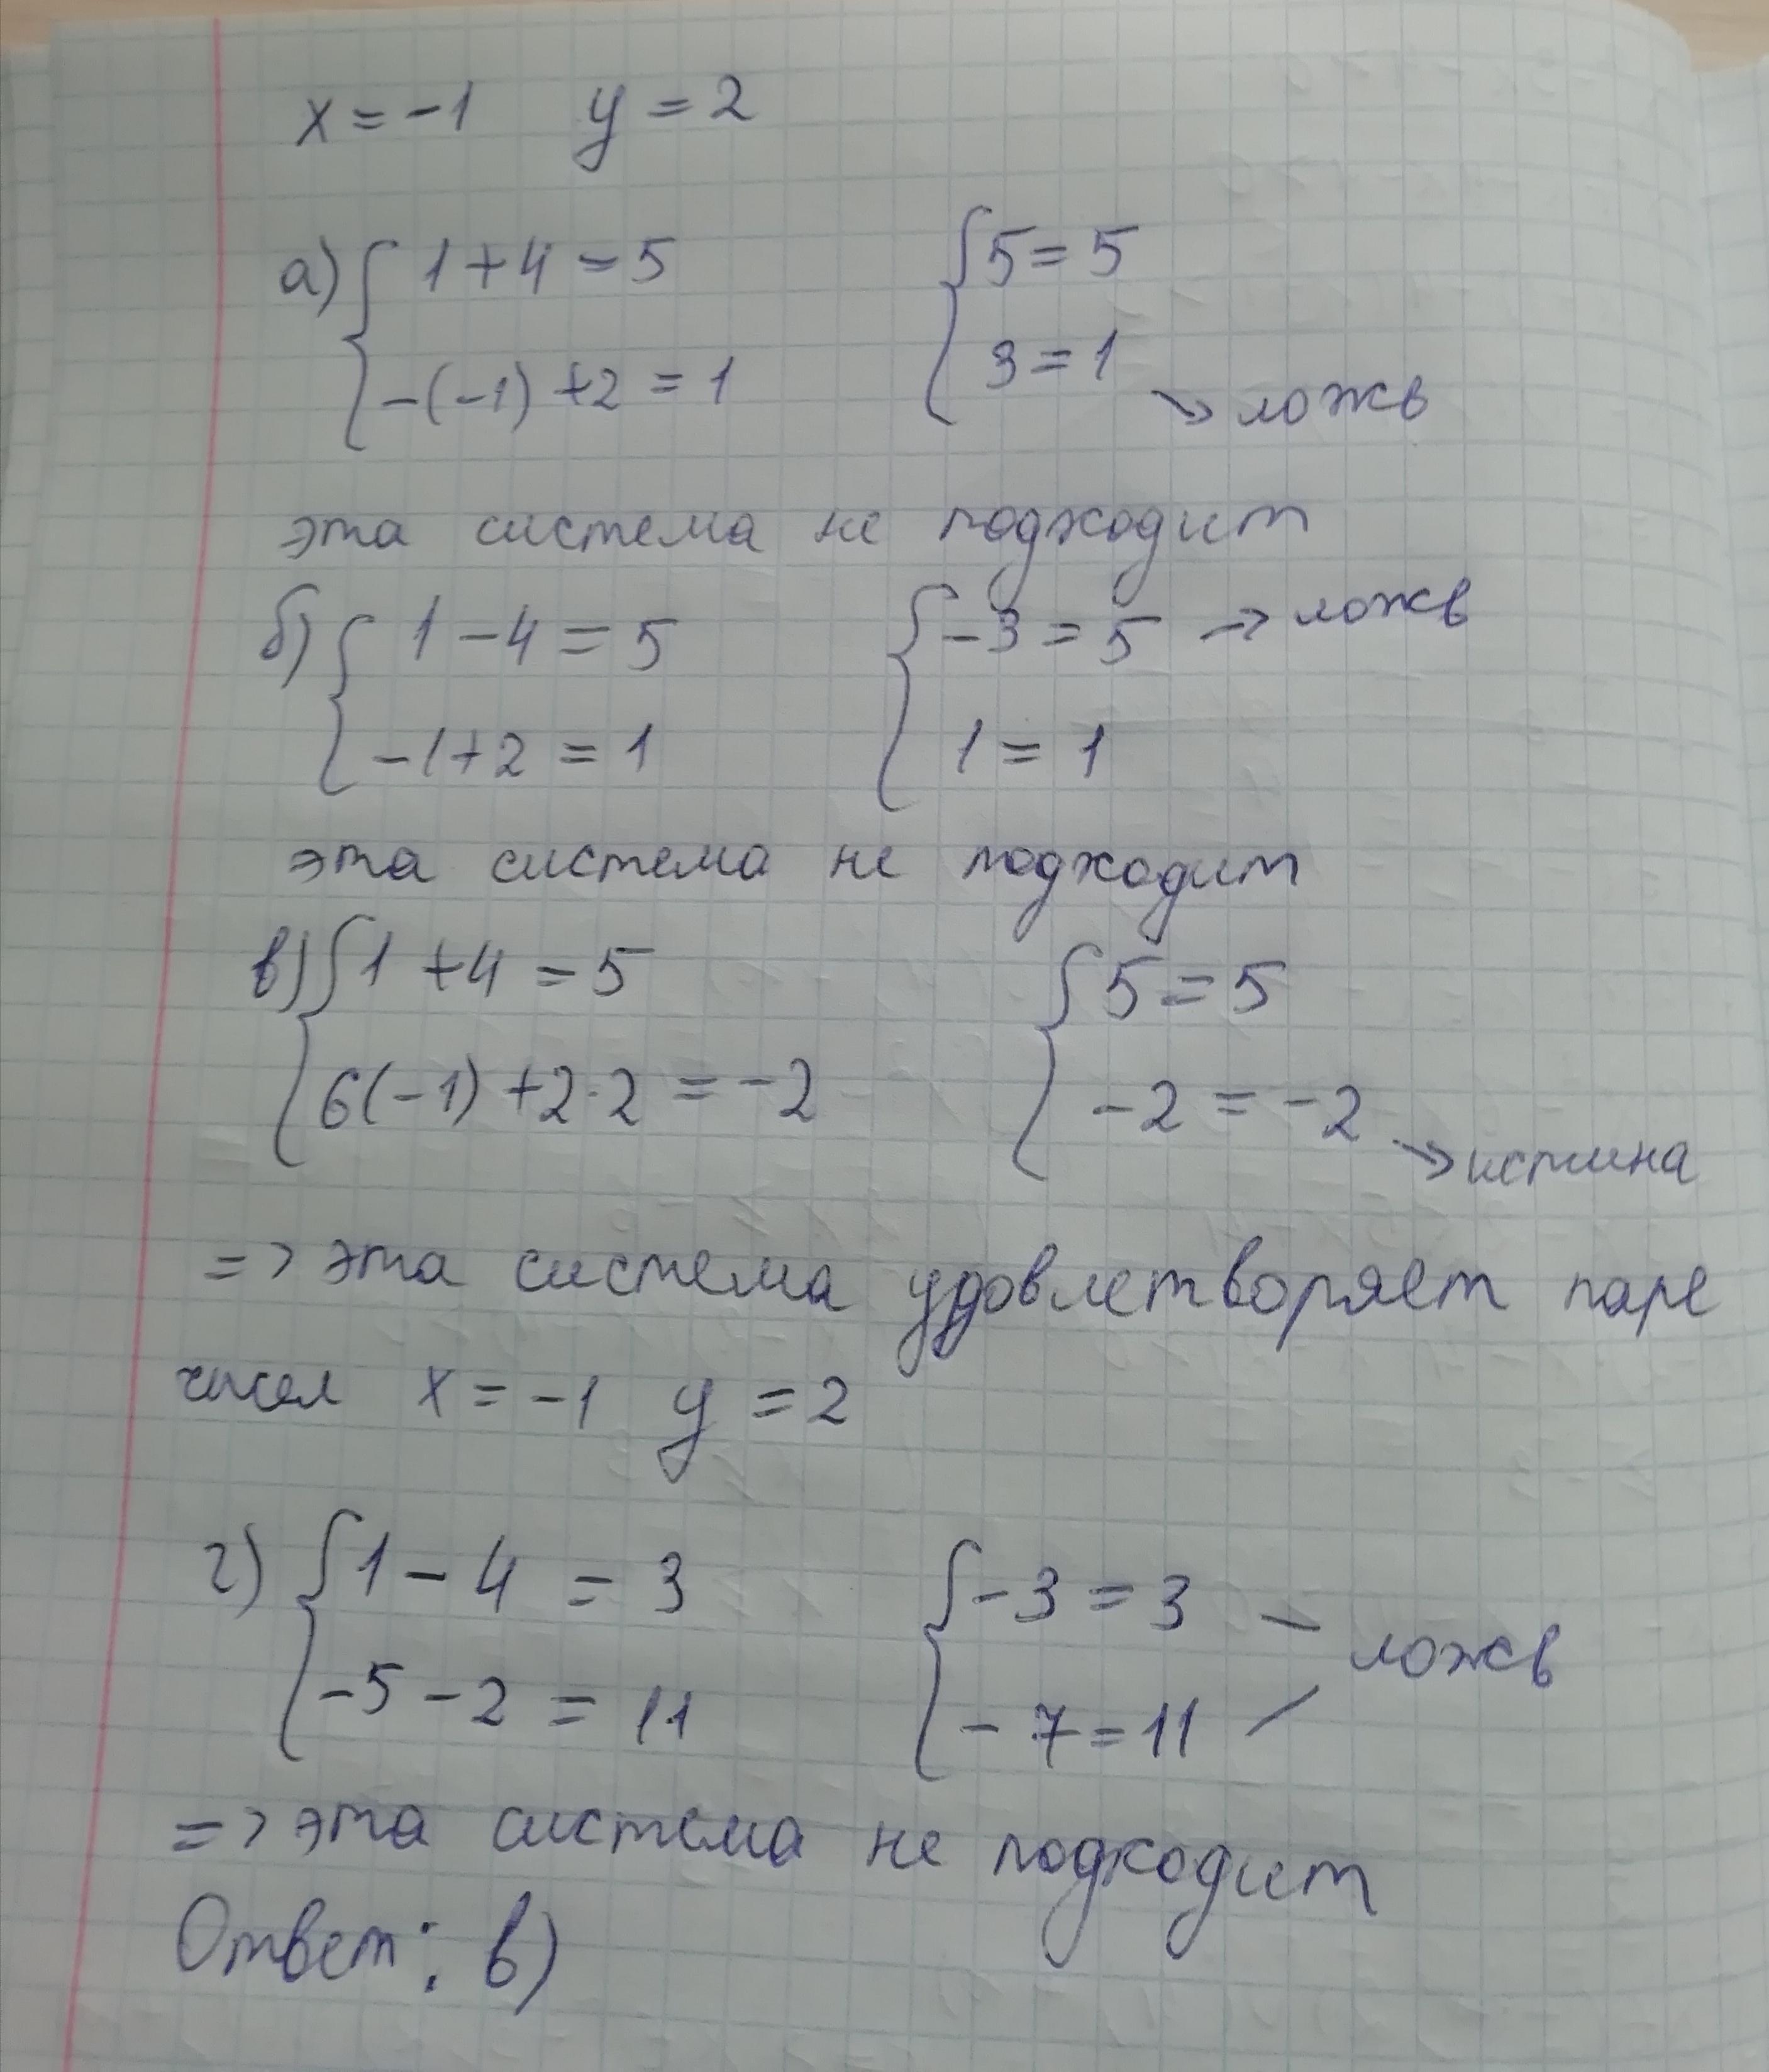 x = -1 y = 2
а) { 1 + 4 = 5 { 5 = 5
-(-1) + 2 = 1 3 = 1 → ложь
эта система не подходит
б) { 1 - 4 = 5 { -3 = 5 → ложь
-1 + 2 = 1 1 = 1
эта система не подходит
в) { 1 + 4 = 5 { 5 = 5
6(-1) + 2·2 = -2 -2 = -2 → истина
=> эта система удовлетворяет паре
чисел x = -1 y = 2
г) { 1 - 4 = 3 { -3 = 3 ложь
-5 - 2 = 11 -7 = 11
=> эта система не подходит
Ответ: в)